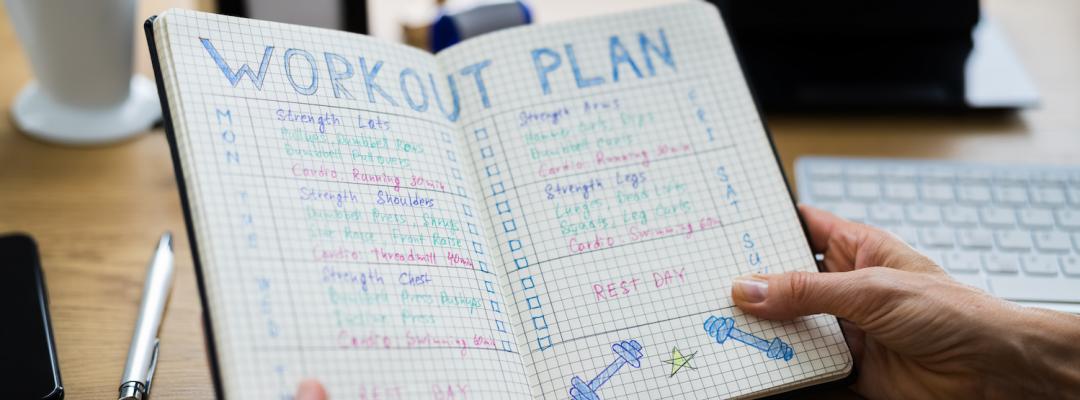 WORKOUT PLAN
MON
Strength Lats
Pullups Dumbbell Rows
Dumbbell Pullovers
Cardio: Running 30min
TUE
Strength Shoulders
Dumbbell Press Shrugs
Side Raise Front Raise
Cardio: Threadmill 40min
WED
Strength Chest
Dumbbell Press Pushups
Press
Cardio: Swimming 60min
T
REST DAY
FRI
Strength Arms
Hammer Curls, Dips
Dumbbell Curls
Cardio: Running 30min
SAT
Strength Legs
Lunges Dead Lifts
Squats Leg Curls
Cardio: Swimming 60m
SU
REST DAY